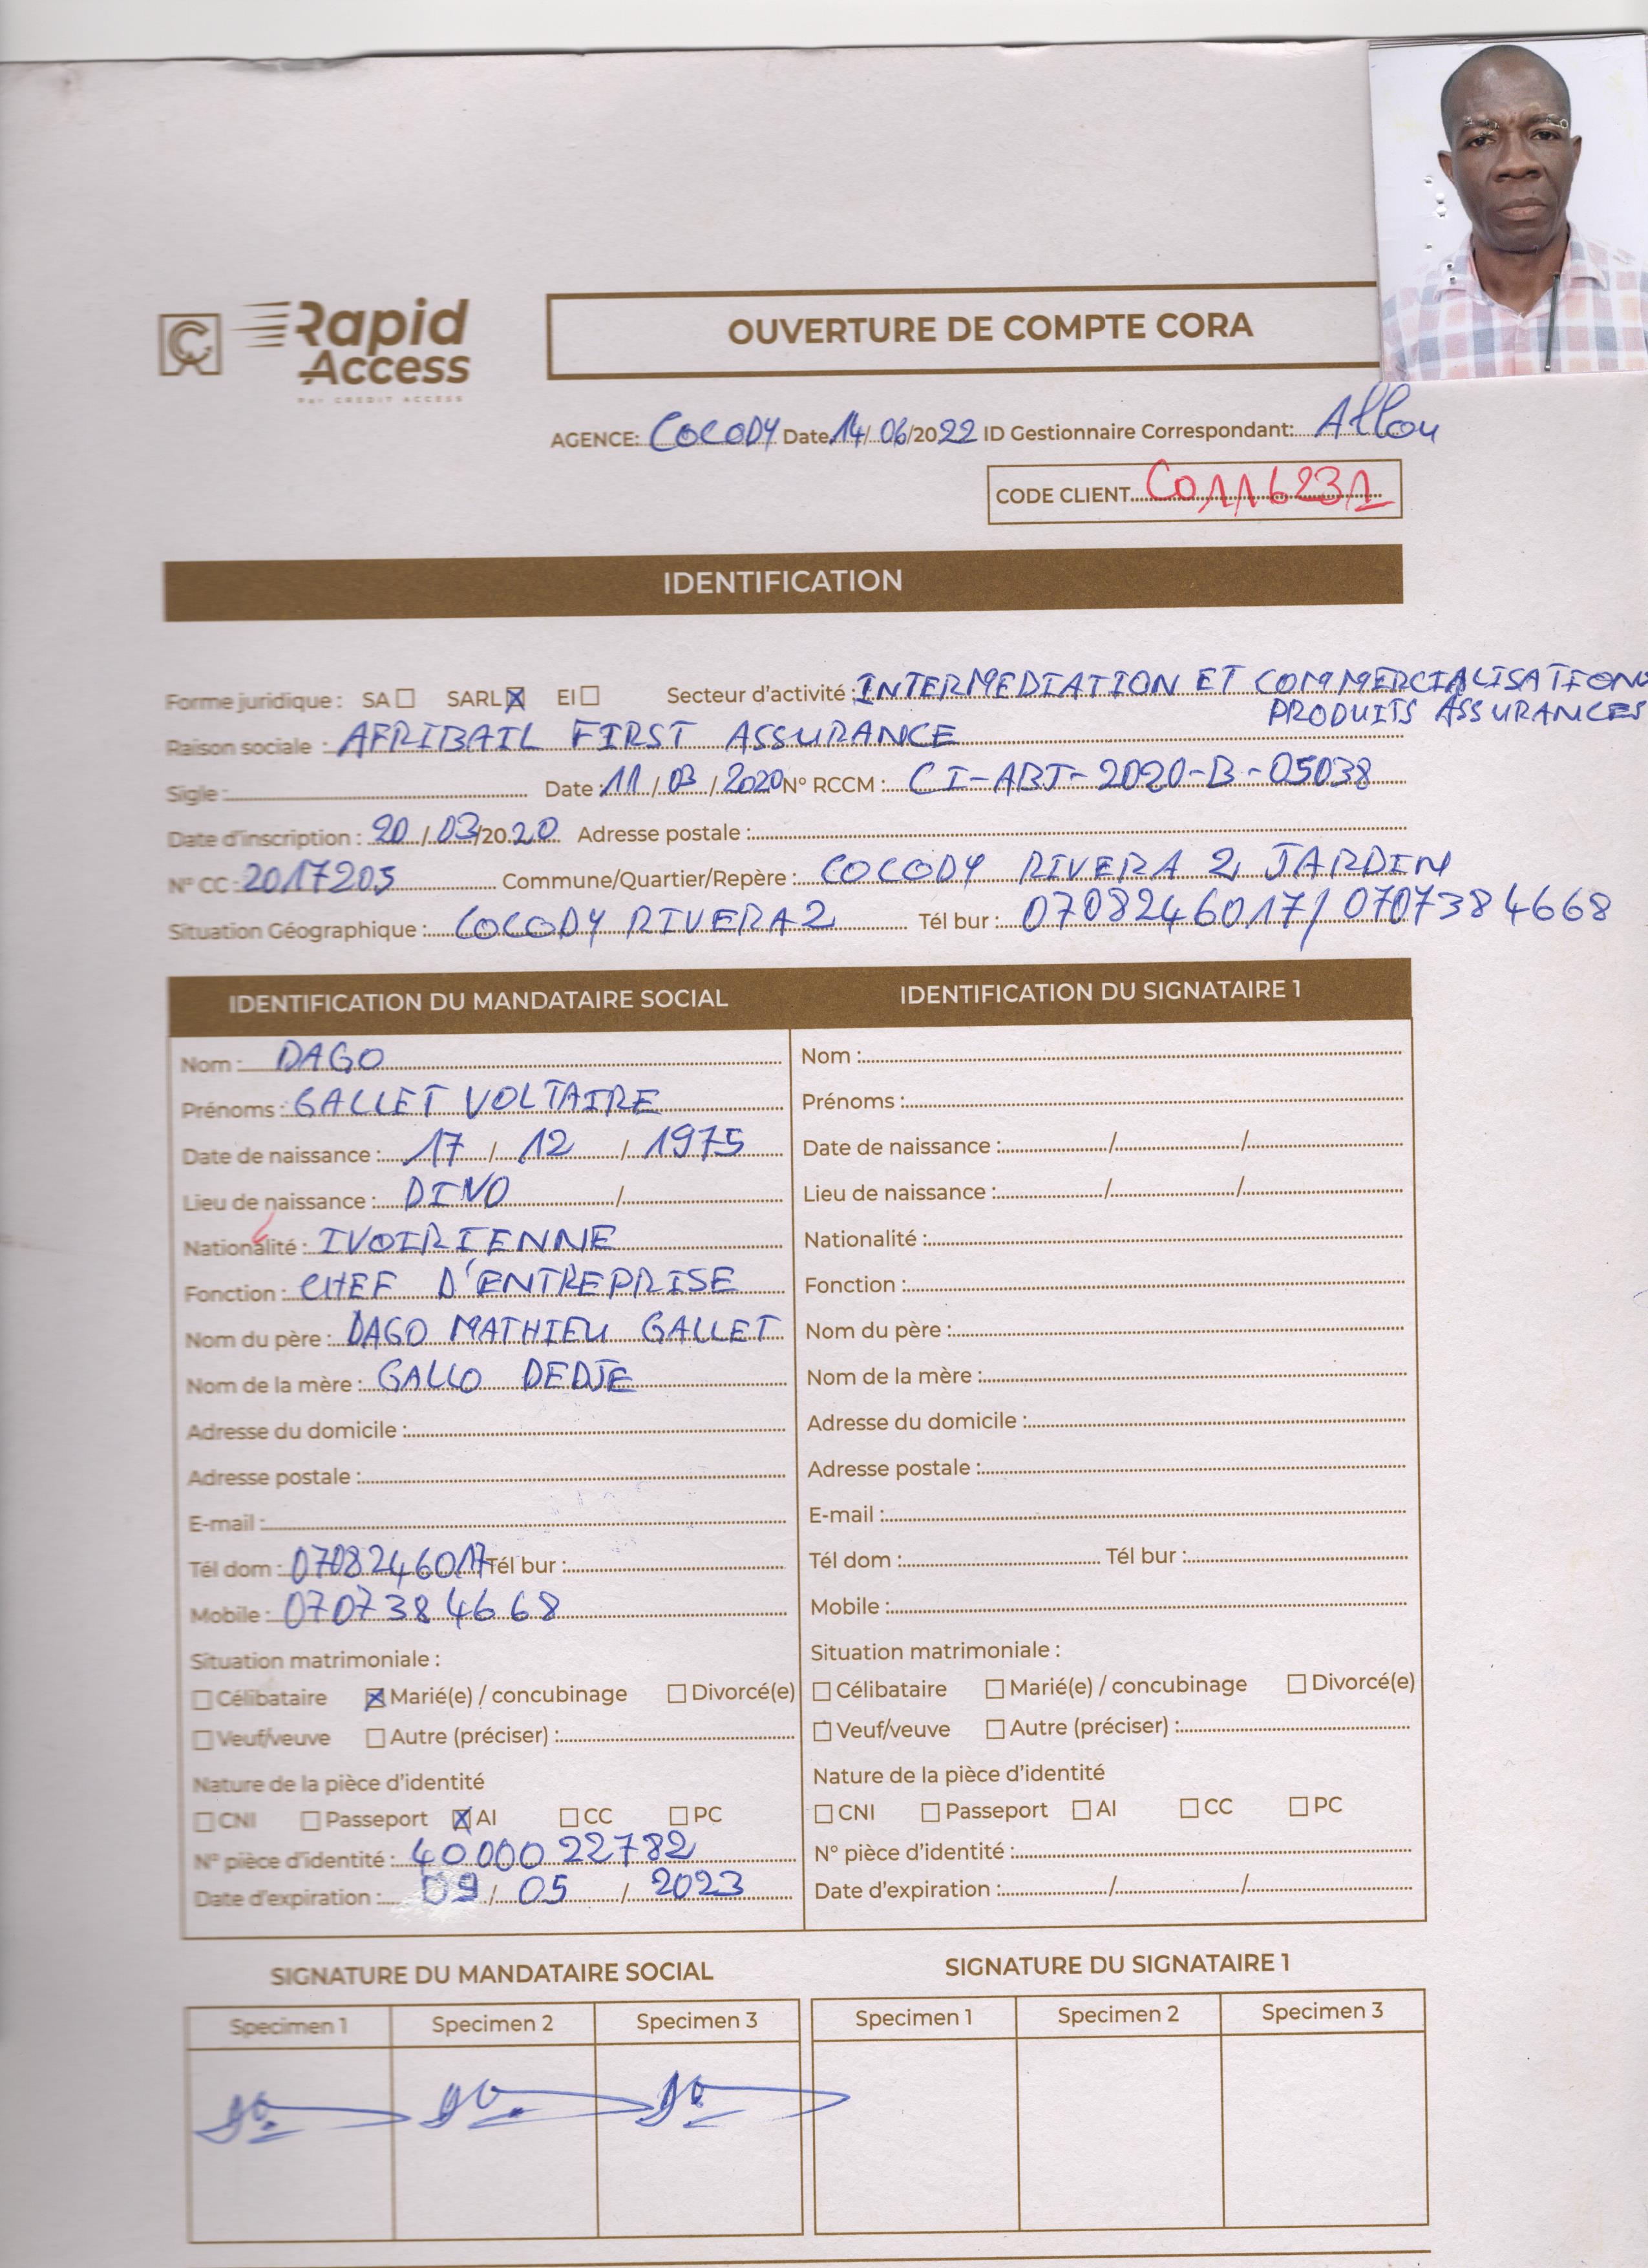 Rapid
Access
Par CREDIT ACCESS
OUVERTURE DE COMPTE CORA
AGENCE: COCODY Date 14/06/2022 ID Gestionnaire Correspondant: Allou
CODE CLIENT C0116231
IDENTIFICATION
Forme juridique : SA ☐ SARL ☒ EI ☐ Secteur d'activité : INTERMEDIATION ET COMMERCIALISATION
PRODUITS ASSURANCES
Raison sociale : AFRIBAIL FIRST ASSURANCE
Sigle : Date : 11 / 03 / 2020 N° RCCM : CI-ABJ-2020-B-05038
Date d'inscription : 20 / 03 /2020 Adresse postale :
N° CC : 2017205 Commune/Quartier/Repère : COCODY RIVERA 2 JARDIN
Situation Géographique : COCODY RIVERA 2 Tél bur : 0708246017 / 0707384668
IDENTIFICATION DU MANDATAIRE SOCIAL
Nom : DAGO
Prénoms : GALLET VOLTAIRE
Date de naissance : 17 / 12 / 1975
Lieu de naissance : DIVO /
Nationalité : IVOIRIENNE
Fonction : CHEF D'ENTREPRISE
Nom du père : DAGO MATHIEU GALLET
Nom de la mère : GALLO DEDJE
Adresse du domicile :
Adresse postale :
E-mail :
Tél dom : 0708246017 Tél bur :
Mobile : 0707384668
Situation matrimoniale :
☐ Célibataire ☒ Marié(e) / concubinage ☐ Divorcé(e)
☐ Veuf/veuve ☐ Autre (préciser) :
Nature de la pièce d'identité
☐ CNI ☐ Passeport ☒ AI ☐ CC ☐ PC
N° pièce d'identité : 4000022782
Date d'expiration : 09 / 05 / 2023
IDENTIFICATION DU SIGNATAIRE 1
Nom :
Prénoms :
Date de naissance : / /
Lieu de naissance : / /
Nationalité :
Fonction :
Nom du père :
Nom de la mère :
Adresse du domicile :
Adresse postale :
E-mail :
Tél dom : Tél bur :
Mobile :
Situation matrimoniale :
☐ Célibataire ☐ Marié(e) / concubinage ☐ Divorcé(e)
☐ Veuf/veuve ☐ Autre (préciser) :
Nature de la pièce d'identité
☐ CNI ☐ Passeport ☐ AI ☐ CC ☐ PC
N° pièce d'identité :
Date d'expiration : / /
SIGNATURE DU MANDATAIRE SOCIAL
Specimen 1 Specimen 2 Specimen 3
SIGNATURE DU SIGNATAIRE 1
Specimen 1 Specimen 2 Specimen 3